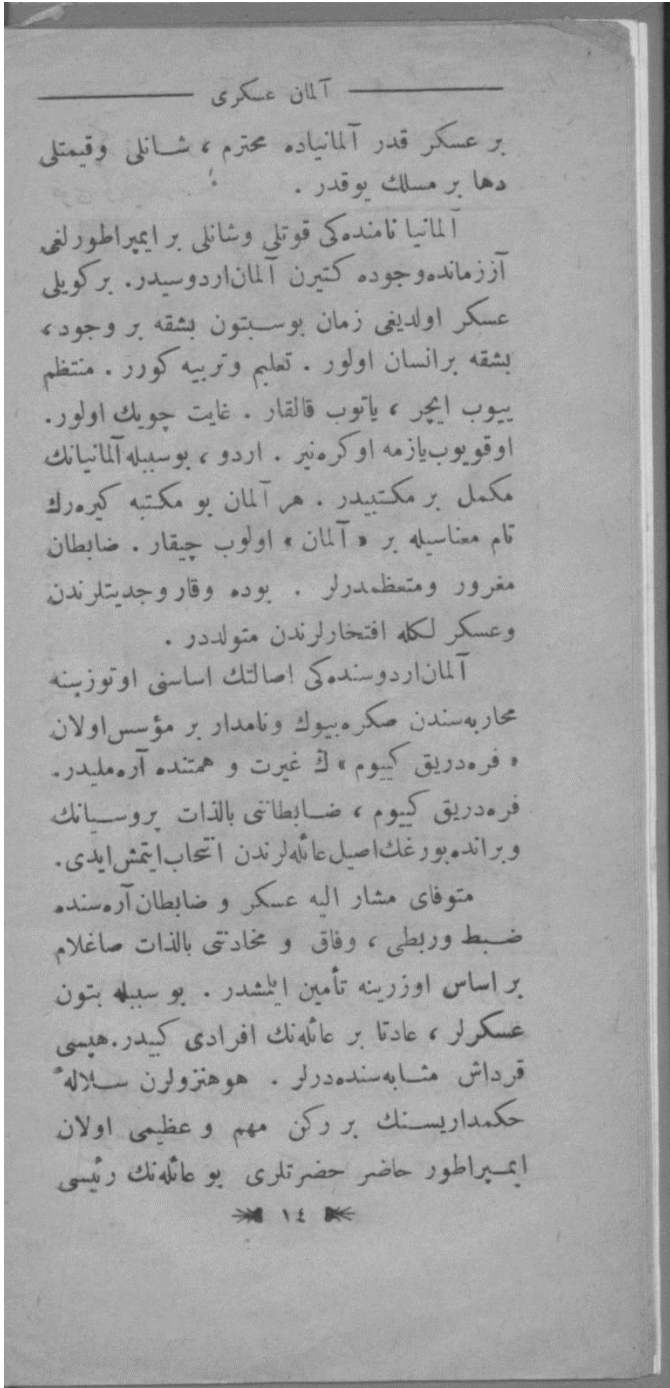 آلمان عسكرى
بر عسكر قدر آلمانياده محترم ، شانلى وقيمتلى
دها بر مسلك يوقدر .
آلمانيا نامنده‌كى قوتلى وشانلى بر ايمپراطورلغى
آززمانده‌وجوده كتيرن آلمان‌اردوسيدر. بركويلى
عسكر اولديغى زمان بوسبتون بشقه بر وجود،
بشقه برانسان اولور . تعليم وتربيه كورر . منتظم
ييوب ايچر ، ياتوب قالقار . غايت چويك اولور.
اوقويوب‌يازمه اوكره‌نير . اردو ، بوسببله‌آلمانيانك
مكمل بر مكتبيدر . هر آلمان بو مكتبه كيره‌رك
تام معناسيله بر « آلمان » اولوب چيقار . ضابطان
مغرور ومتعظمدرلر . بوده وقار وجديتلرندن
وعسكر لكله افتخارلرندن متولددر .
آلمان‌اردوسنده‌كى اصالتك اساسنى اوتوزسنه
محاربه‌سندن صكره‌بيوك ونامدار بر مؤسس‌اولان
« فره‌دريق كييوم » ڭ غيرت و همتنده آره‌مليدر.
فره‌دريق كييوم ، ضابطاننى بالذات پروسيانك
وبرانده‌بورغك‌اصيل‌عائله‌لرندن انتخاب‌ايتمش‌ايدى.
متوفاى مشار اليه عسكر و ضابطان‌آره‌سنده
ضبط وربطى ، وفاق و مخادنتى بالذات صاغلام
بر اساس اوزرينه تأمين ايلمشدر . بو سببله بتون
عسكرلر ، عادتا بر عائله‌نك افرادى كبيدر.هپسى
قرداش مثابه‌سنده‌درلر . هوهنزولرن سلالهٔ
حكمداريسنك بر ركن مهم و عظيمى اولان
ايمپراطور حاضر حضرتلرى بو عائله‌نك رئيسى
١٤